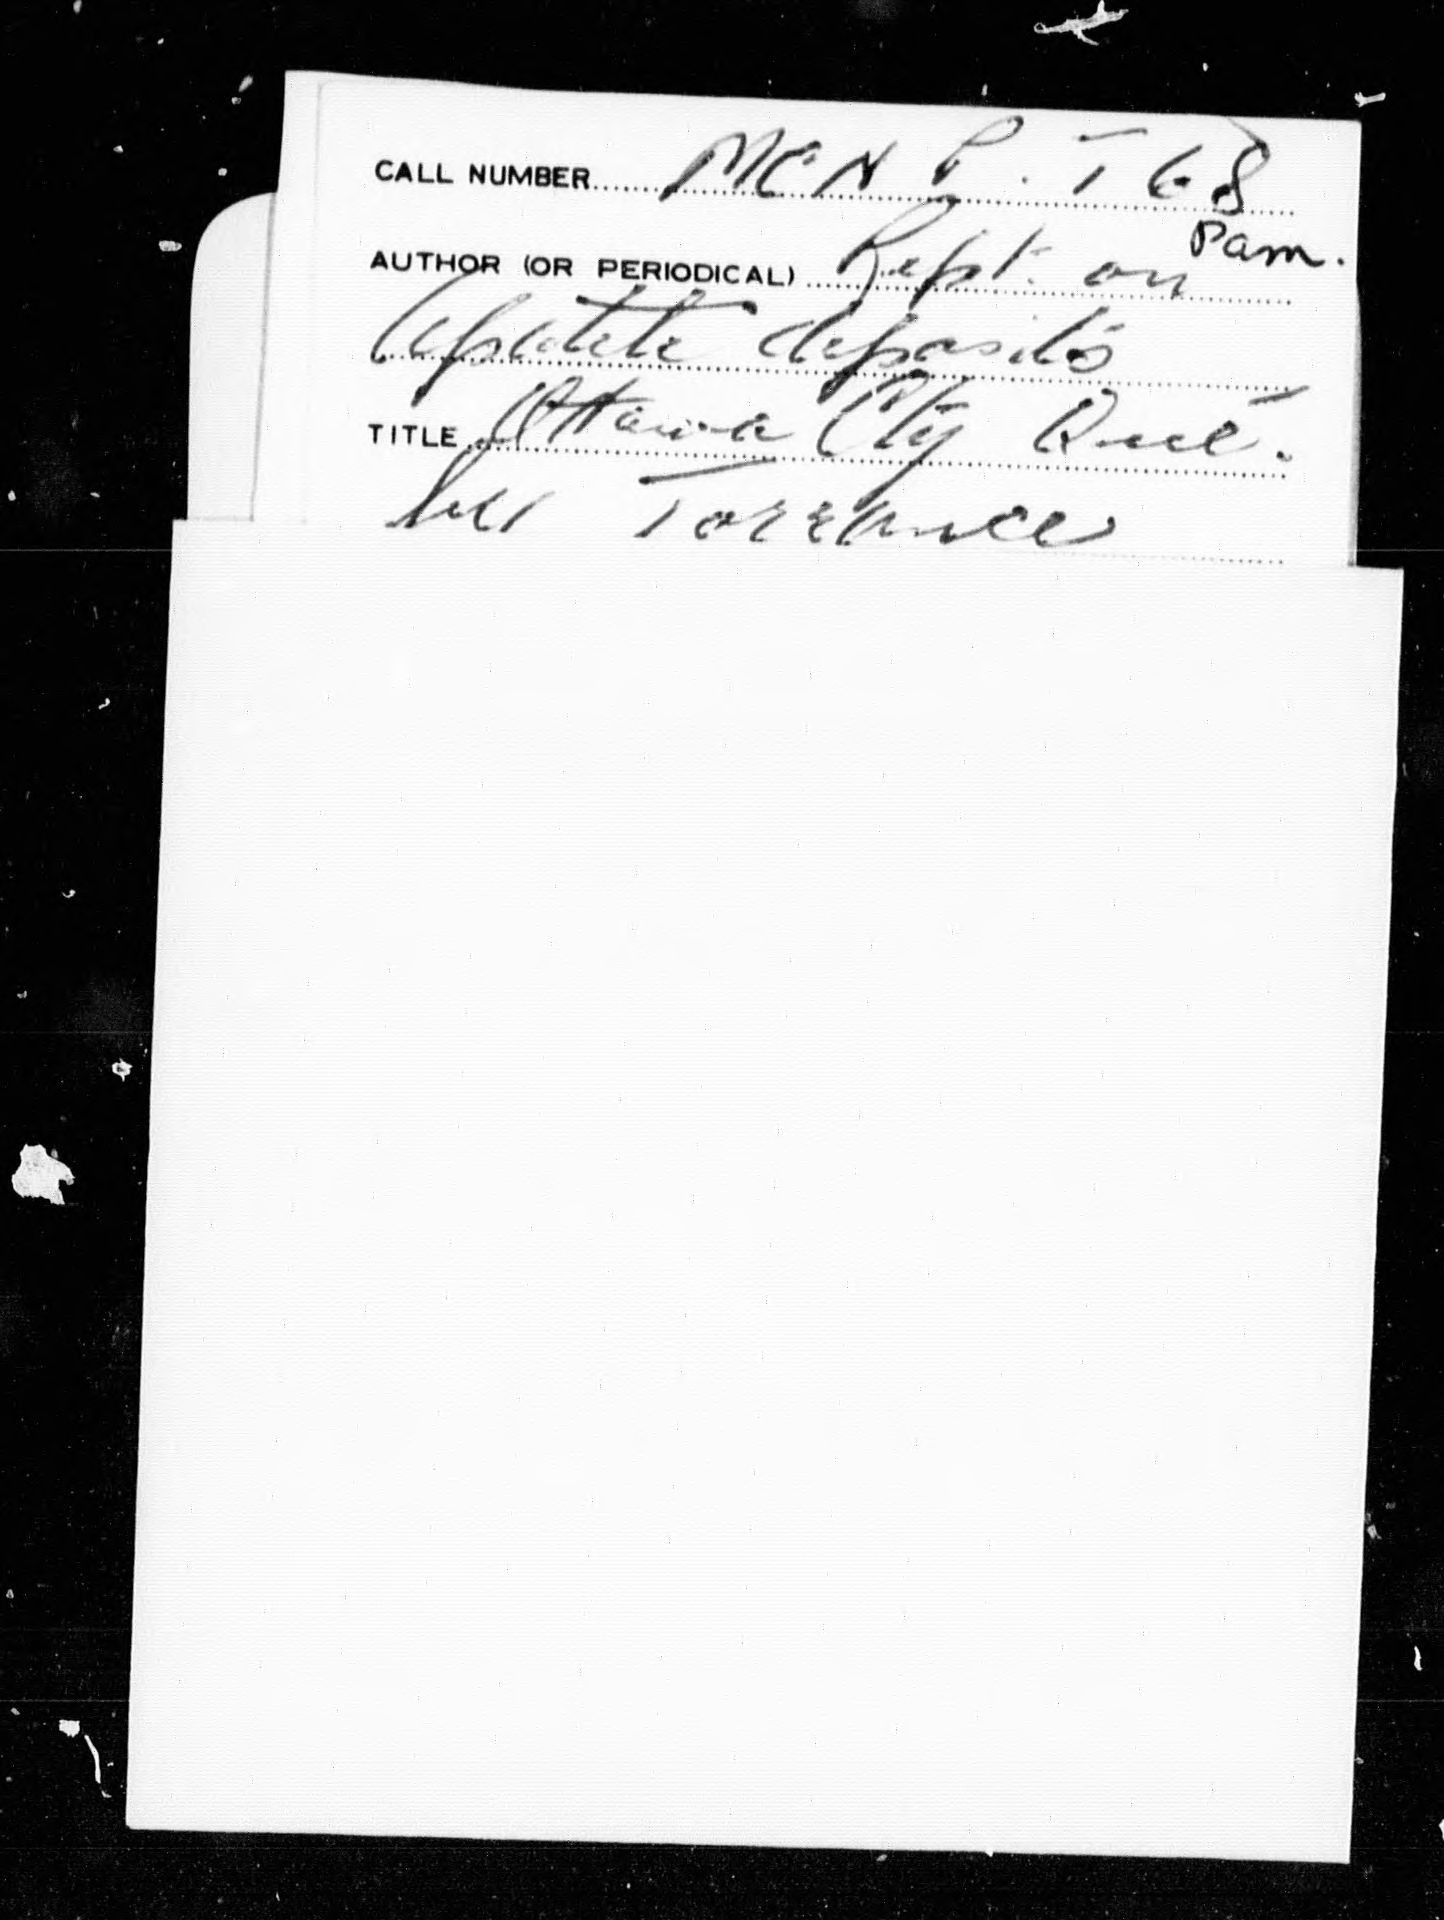 CALL NUMBER MCN P. T68
Pam.
AUTHOR (OR PERIODICAL) Rept. on
Apatite deposits
TITLE Ottawa Cty Que.
by Torrance